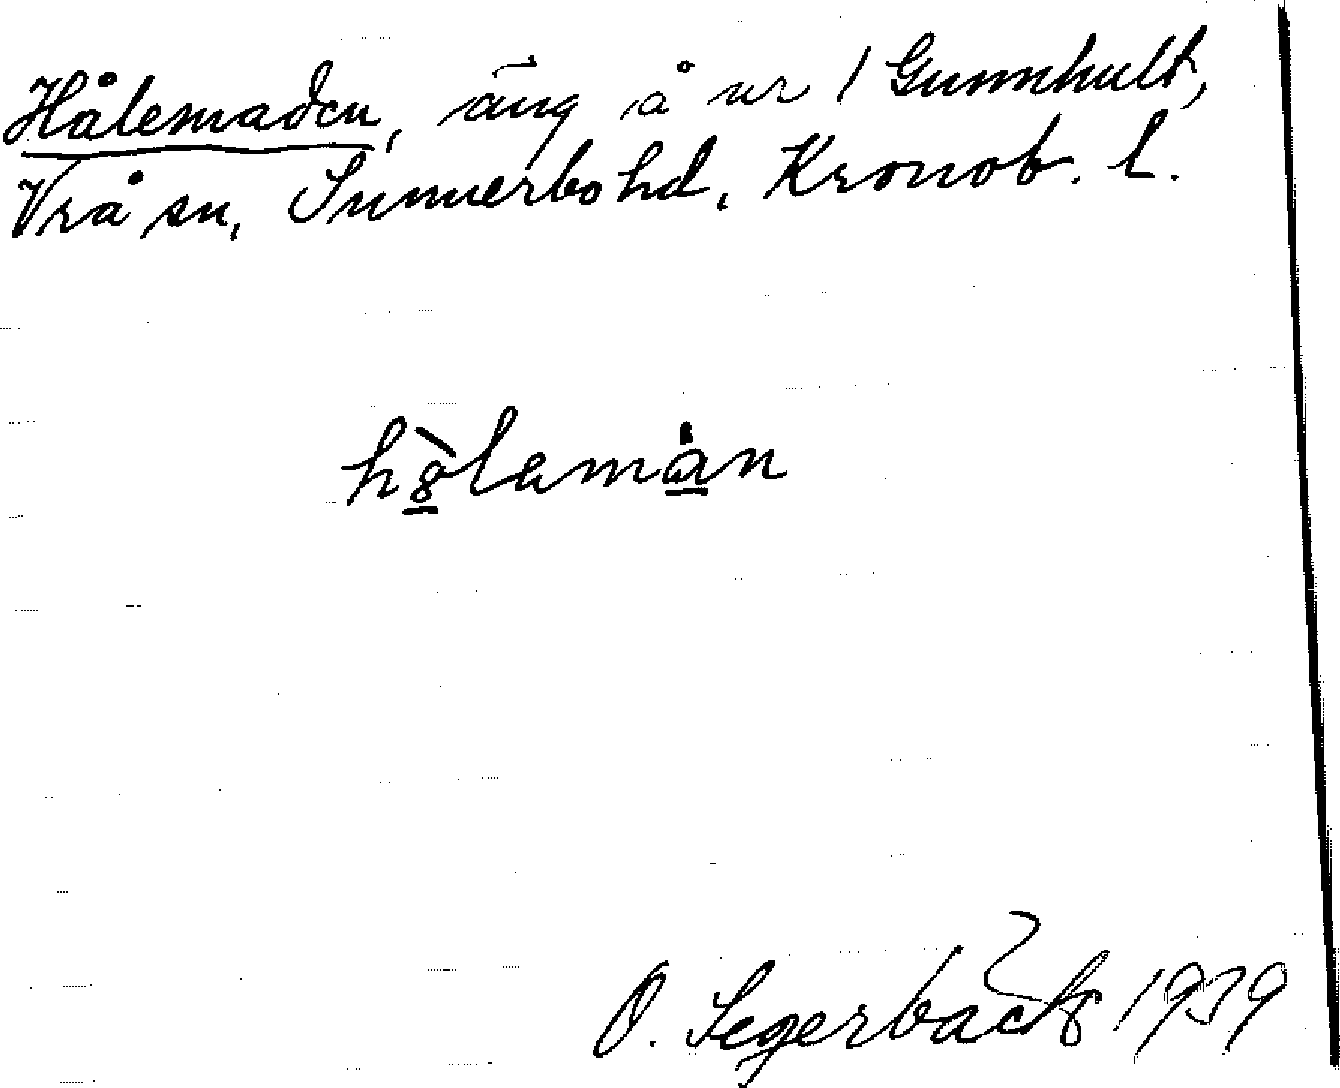 Hålemaden, äng å nr 1 Gunnhult,
Vrå sn, Sunnerbo hd, Kronob. l.
O. Segerbäck 1939